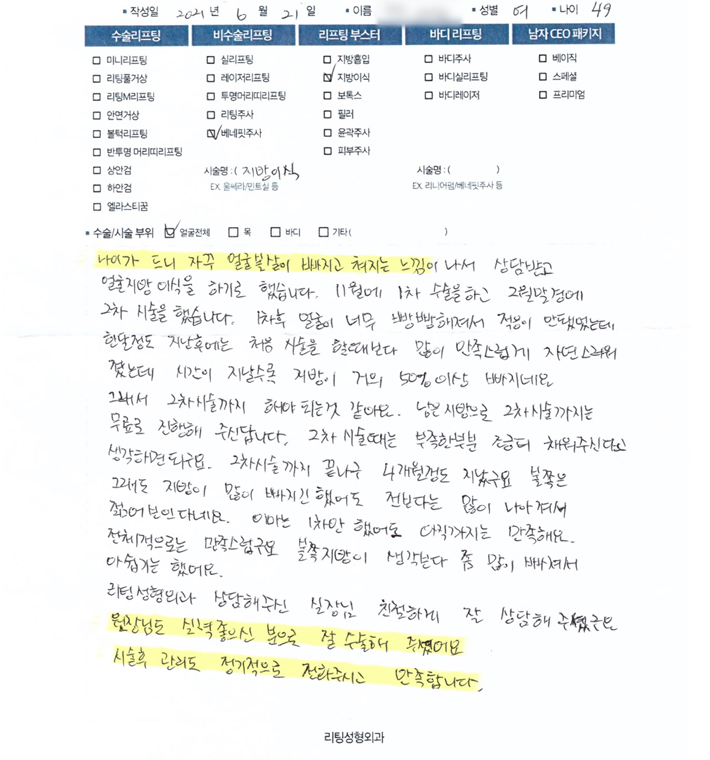 • 작성일 2021년 6월 21일 • 이름 • 성별 여 • 나이 49
수술리프팅 비수술리프팅 리프팅 부스터 바디 리프팅 남자 CEO 패키지
미니리프팅 실리프팅 지방흡입 바디주사 베이직
리팅풀거상 레이저리프팅 지방이식 바디실리프팅 스페셜
리팅M리프팅 투명머리띠리프팅 보톡스 바디레이저 프리미엄
안면거상 리팅주사 필러
볼턱리프팅 베네핏주사 윤곽주사
반투명 머리띠리프팅 피부주사
상안검 시술명 : ( 지방이식 시술명 : ( )
하안검 EX. 울쎄라/민트실 등 EX. 리니어펌/베네핏주사 등
엘라스티꿈
• 수술/시술 부위 얼굴전체 목 바디 기타 ( )
나이가 드니 자꾸 얼굴볼살이 빠지고 쳐지는 느낌이 나서 상담받고
얼굴지방 이식을 하기로 했습니다. 11월에 1차 수술을 하고 2월말경에
2차 시술을 했습니다. 1차후 얼굴이 너무 빵빵해져서 적응이 안됐었는데
한달정도 지난후에는 처음 시술을 할때보다 많이 만족스럽게 자연스러워
졌는데 시간이 지날수록 지방이 거의 50% 이상 빠지네요
그래서 2차시술까지 해야 되는것 같아요. 남은지방으로 2차시술까지는
무료로 진행해 주신답니다. 2차 시술때는 부족한부분 조금더 채워주신다고
생각하면되구요. 2차시술까지 끝나구 4개월정도 지났구요 볼쪽은
그래도 지방이 많이 빠지긴 했어도 전보다는 많이 나아져서
젊어보인다네요. 이마는 1차만 했어도 아직까지는 만족해요.
전체적으로는 만족스럽구요 볼쪽지방이 생각보다 좀 많이 빠져서
아쉽기는 했어요.
리팅성형외과 상담해주신 실장님 친절하게 잘 상담해 주셨구요
원장님도 실력좋으신 분으로 잘 수술해 주셨어요
시술후 관리도 정기적으로 전화주시고 만족합니다.
리팅성형외과